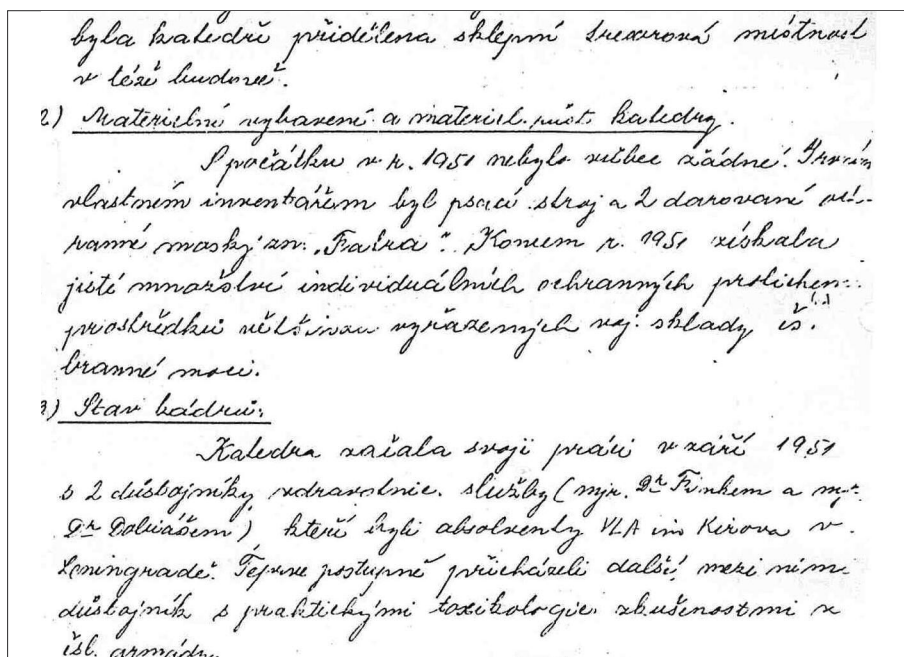 byla katedře přidělena sklepní trezorová místnost
v téže budově.
2) Materielní vybavení a materiel. růst. katedry.
Spočátku v r. 1951 nebylo vůbec žádné. Prvním
vlastním inventářem byl psací stroj a 2 darované
ranné masky zn. „Fatra". Koncem r. 1951 získala
jisté množství individuálních ochranných protichem.
prostředků většinou vyřazených voj. sklady čs.
branné moci.
3) Stav kádrů:
Katedra začala svoji práci v září 1951
s 2 důstojníky zdravotnic. služby (mjr. Dr Finkem a mjr.
Dr Dobiášem) kteří byli absolventy VLA im Kirova v
Leningradě. Teprve postupně přicházeli další, mezi nimi
důstojník s praktickými toxikologic. zkušenostmi z
čsl. armády.